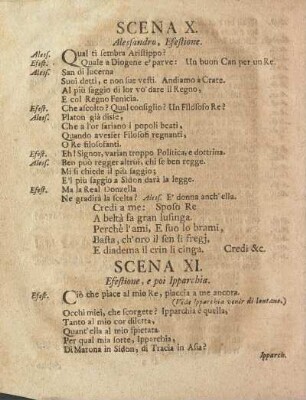 SCENA X.
Alessandro, Efestione.
Aless. Qual ti sembra Aristippo?
Efest. Quale a Diogene e' parve: Un buon Can per un Re.
Aless. San di lucerna
Suoi detti, e non sue vesti. Andiamo a Crate.
Al più saggio di lor vo' dare il Regno,
E col Regno Fenicia.
Efest. Che ascolto? Qual consiglio? Un Filosofo Re?
Aless. Platon già disse,
Che a l'or sariano i popoli beati,
Quando avesser Filosofi regnanti,
O Re filosofanti.
Efest. Eh! Signor, varian troppo Politica, e dottrina.
Aless. Ben può regger altrui, chi se ben regge.
Mi si chiede il più saggio;
E'l più saggio a Sidon darà la legge.
Efest. Ma la Real Donzella
Ne gradirà la scelta? Aless. E' donna anch'ella.
Credi a me: Sposo Re
A beltà fa gran lusinga.
Perchè l'ami, E suo lo brami,
Basta, ch'oro il sen si fregj,
E diadema il crin li cinga. Credi &c.
SCENA XI.
Efestione, e poi Ipparchia.
Efest. Ciò che piace al mio Re, piaccia a me ancora.
(Vede Ipparchia venir di lontano.)
Occhi miei, che scorgete? Ipparchia è quella,
Tanto al mio cor diletta,
Quant'ella al mio spietata.
Per qual mia sorte, Ipparchia,
Di Marona in Sidon, di Tracia in Asia?
Ipparch.